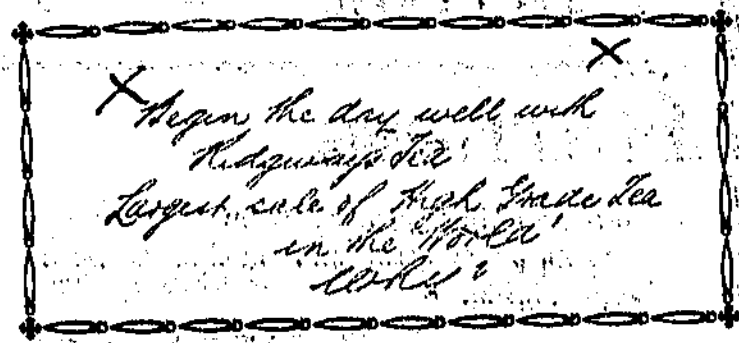 Begin the day well with
Ridgways Tea
Largest sale of High Grade Tea
in the World
Why?